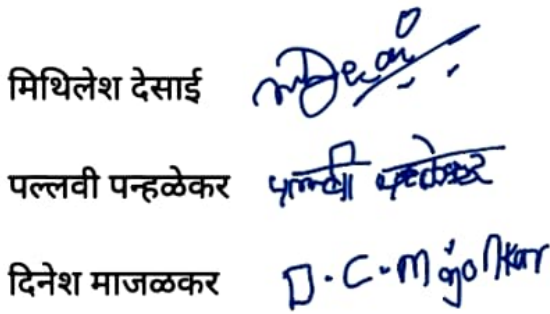 मिथिलेश देसाई
पल्लवी पन्हळेकर पल्लवी पन्हळेकर
दिनेश माजळकर D.C.Majalkar